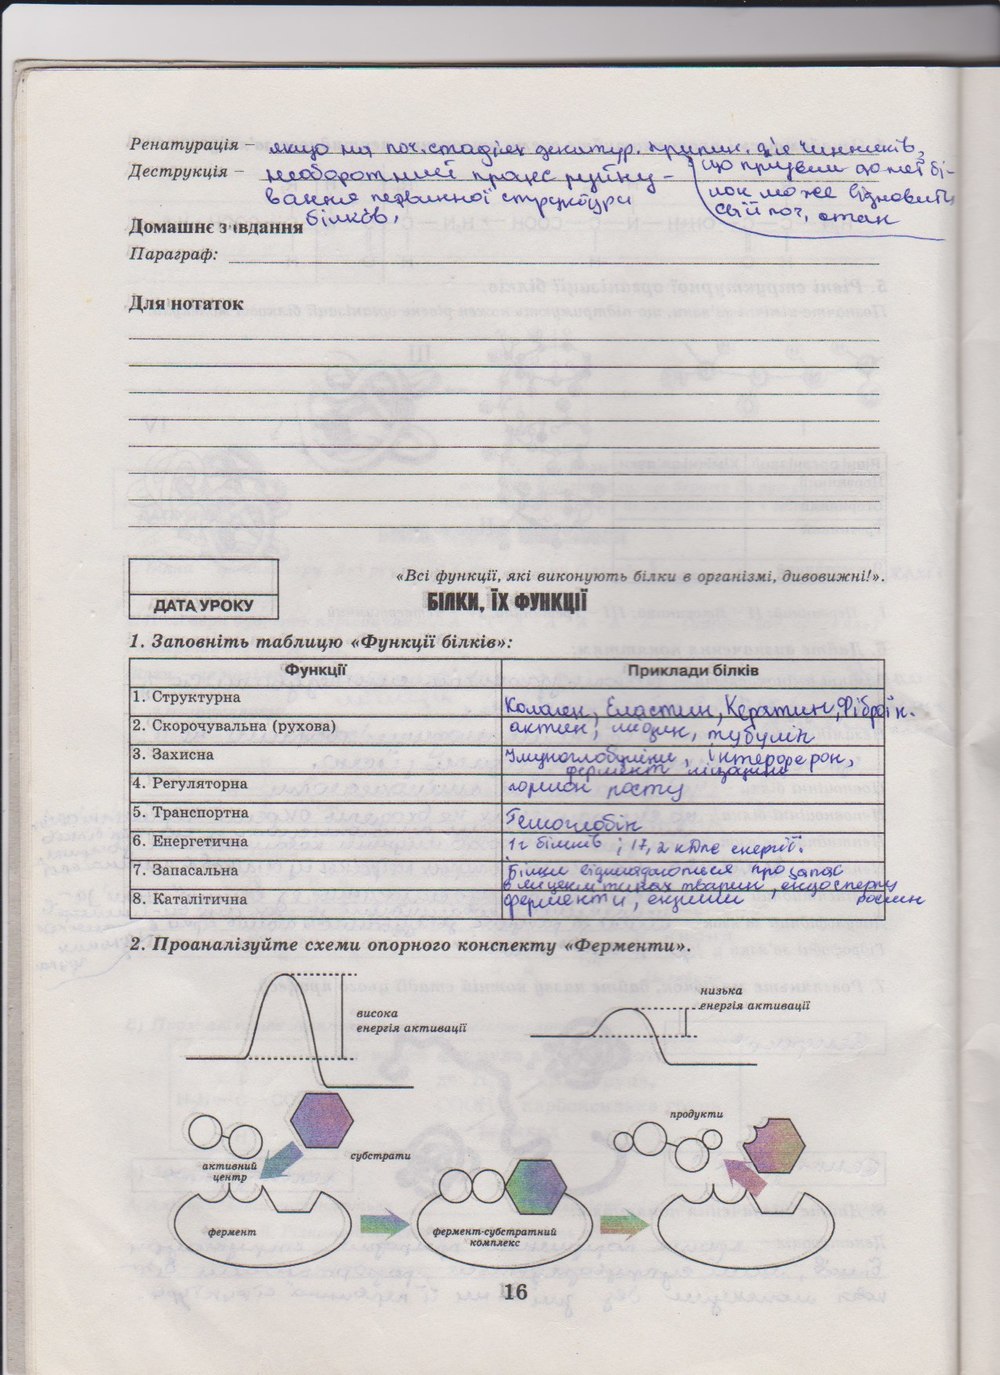 Ренатурація – якщо на поч. стадіях денатур. припин. дія чинників,
що призвели до неї бі-
лок може відновить
свій поч. стан
Деструкція – необоротний процес руйну-
вання первинної структури
білків.
Домашнє завдання
Параграф:
Для нотаток
«Всі функції, які виконують білки в організмі, дивовижні!».
ДАТА УРОКУ
БІЛКИ, ЇХ ФУНКЦІЇ
1. Заповніть таблицю «Функції білків»:
Функції Приклади білків
1. Структурна Колаген, Еластин, Кератин, Фіброїн.
2. Скорочувальна (рухова) актин, міозин, тубулін
3. Захисна Імуноглобуліни, інтерферон,
фермент лізоцим
4. Регуляторна гормон росту
5. Транспортна Гемоглобін
6. Енергетична 1г білків ; 17,2 кДж енергії.
7. Запасальна Білки відкладаються про запас
в яйцеклітинах тварин, ендосперму
рослин
8. Каталітична ферменти, ензими
2. Проаналізуйте схеми опорного конспекту «Ферменти».
висока
енергія активації
низька
енергія активації
субстрати
активний
центр
фермент
фермент-субстратний
комплекс
продукти
16